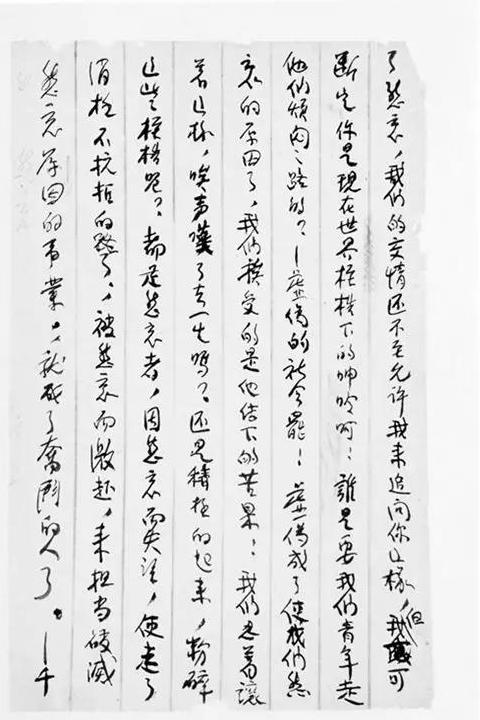 了悲哀，我们的交情还不至允许我来追问你这樣，但我可
断定你是現在世界桎梏下的呻吟呵！誰是要我们青年走
他们烦闷之路的？—虚偽的社会罷！虚偽成了使我们悲
哀的原因了，我们挨受的是他结下的苦果！我们忍着讓
着这樣，唉声嘆了去一生嗎？还是積極的起来，粉碎
这些桎梏呢？都是悲哀者，因悲哀而失望，便走了
消極不抗拒的路了，被悲哀而激起，来担当破滅
悲哀原因的事業，就成了奮鬥的人了。—千